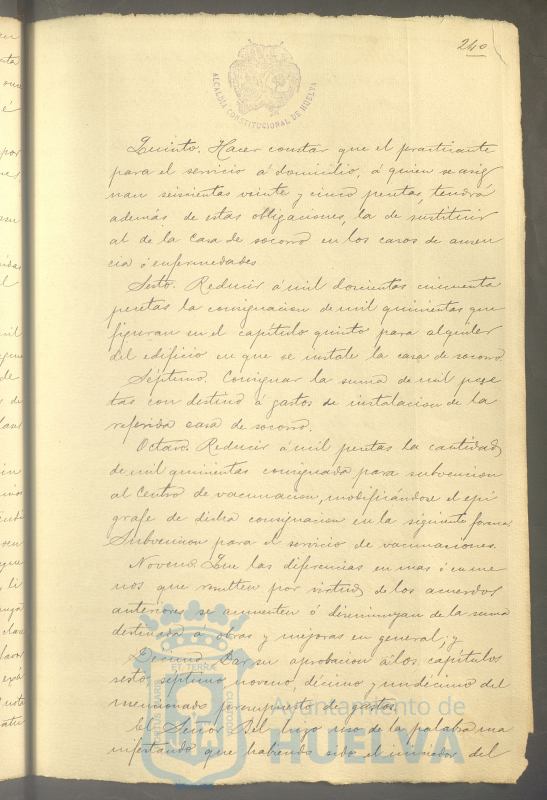 240
ALCALDIA CONSTITUCIONAL DE HUELVA
Quinto. Hacer constar que el practicante
para el servicio á domicilio, á quien se asig
nan seiscientas veinte y cinco pesetas, tendrá
además de estas obligaciones, la de sustituir
al de la Casa de socorro en los casos de ausen
cia ó enfermedades
Sesto. Reducir á mil doscientas cincuenta
pesetas la consignacion de mil quinientas que
figuran en el capitulo quinto para alquiler
del edificio en que se instale la casa de socorro
Séptimo. Consignar la suma de mil pese
tas con destino á gastos de instalacion de la
referida casa de socorro.
Octavo. Reducir á mil pesetas la cantidad
de mil quinientas consignada para subvencion
al Centro de vacunacion, modificándose el epi
grafe de dicha consignacion en la siguiente forma
Subvencion para el servicio de vacunaciones.
Noveno. Que las diferencias en mas ó en me
nos que resulten por virtud de los acuerdos
anteriores se aumenten ó disminuyan de la suma
destinada a obras y mejoras en general; y
Decimo Dar su aprobacion á los capitulos
sesto, septimo, noveno, décimo y undécimo del
mencionado presupuesto de gastos.
El Señor Bel hizo uso de la palabra ma
nifestando que habiendo sido el iniciador del
Ayuntamiento de
HUELVA